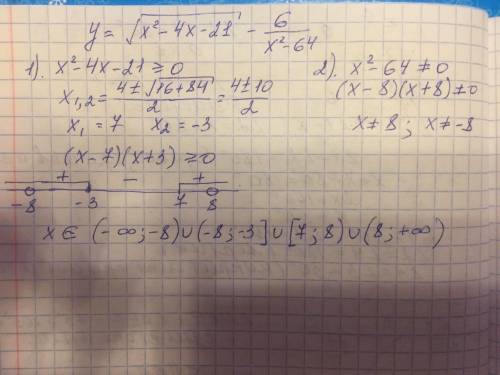 y = √(x² - 4x - 21) - 6/(x² - 64)
1). x² - 4x - 21 ≥ 0
x₁,₂ = (4 ± √(16 + 84))/2 = (4 ± 10)/2
x₁ = 7 x₂ = -3
(x - 7)(x + 3) ≥ 0
+ - +
-8 -3 7 8
2). x² - 64 ≠ 0
(x - 8)(x + 8) ≠ 0
x ≠ 8; x ≠ -8
x ∈ (-∞; -8) ∪ (-8; -3] ∪ [7; 8) ∪ (8; +∞)